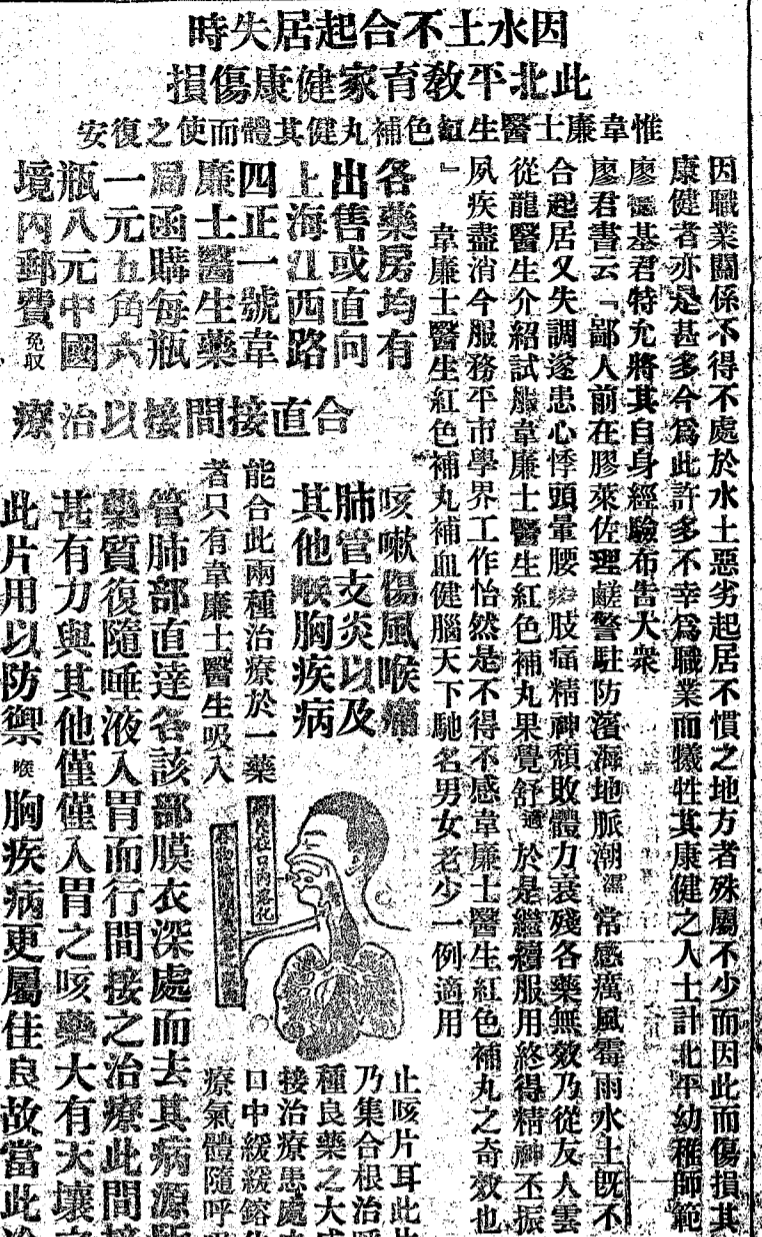 因水土不合起居失時
此北平教育家健康傷損
惟韋廉士醫生紅色補丸健其體而使之復安
因職業關係不得不處於水土惡劣起居不慣之地方者殊屬不少而因此而傷損其
康健者亦是甚多今爲此許多不幸爲職業而犧牲其康健之人士計北平幼稚師範
廖基君特允將其自身經驗布告大衆
廖君書云「鄙人前在膠萊佐理鹺警駐防濱海地脈潮濕常感癘風霉雨水土既不
合起居又失調遂患心悸頭暈腰痠肢痛精神頹敗體力衰殘各藥無效乃從友人雲
從龍醫生介紹試服韋廉士醫生紅色補丸果覺舒適於是繼續服用終得精神丕振
夙疾盡消今服務平市學界工作怡然是不得不感韋廉士醫生紅色補丸之奇效也
」韋廉士醫生紅色補丸補血健腦天下馳名男女老少一例適用
各藥房均有
出售或直向
上海江西路
四正一號韋
廉士醫生藥
局函購每瓶
一元五角六
瓶八元中國
境內郵費免収
合直接間接以治療
咳嗽傷風喉痛
肺管支炎以及
其他喉胸疾病
能合此兩種治療於一藥
者只有韋廉士醫生吸入
止咳片耳此片
乃集合根治
種良藥之大成
接治療患處
口中緩緩鎔化
療氣體隨呼
管肺部直達各該部膜衣深處而去其病源
藥質復隨唾液入胃而行間接之治療此間接
甚有力與其他僅僅入胃之咳藥大有天壤
此片用以防禦喉胸疾病更屬佳良故當此